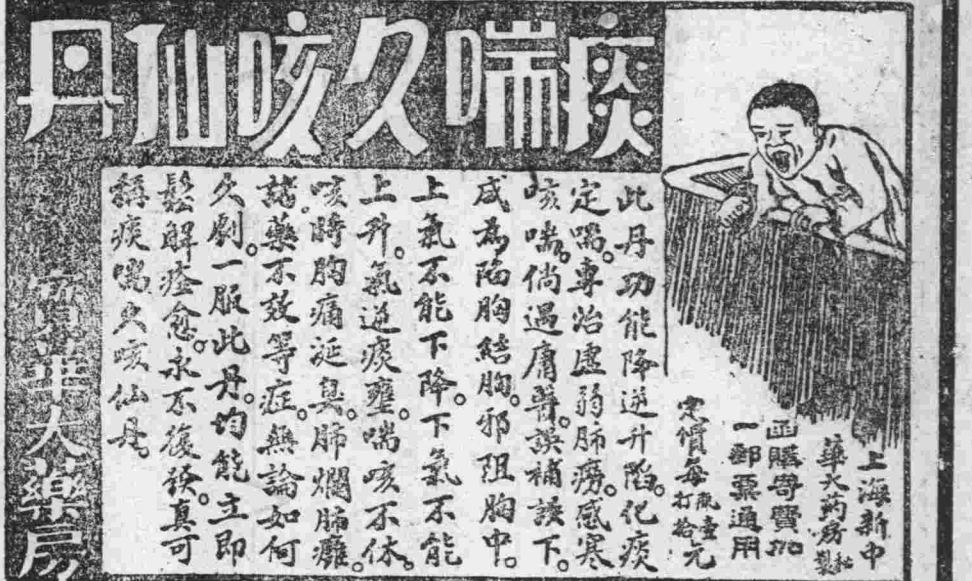 痰喘久咳仙丹
上海新中
華大药房秘製
函購寄費加
一郵票通用
定價每瓶壹元
打拾元
此丹功能降逆升陷化痰
定喘。專治虛弱肺癆。感寒
咳喘。倘遇庸醫。誤補誤下。
成為陷胸結胸。邪阻胸中。
上氣不能下降。下氣不能
上升。氣逆痰壅。喘咳不休。
咳時胸痛涎臭。肺爛肺癰。
諸藥不效等症。無論如何
久劇。一服此丹。均能立即
鬆解痊愈。永不復發。真可
稱痰喘久咳仙丹。
華大藥房